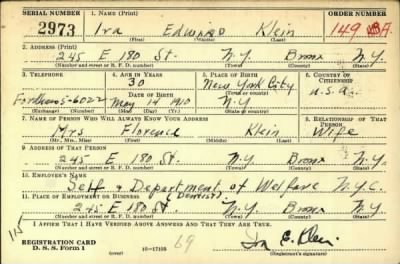 SERIAL NUMBER 1. NAME (Print) ORDER NUMBER
2973 Ira Edward Klein 149 A.
(First) (Middle) (Last)
2. ADDRESS (Print)
245 E 180 St. N.Y. Bronx N.Y.
(Number and street or R. F. D. number) (Town) (County) (State)
3. TELEPHONE 4. AGE IN YEARS 5. PLACE OF BIRTH 6. COUNTRY OF CITIZENSHIP
30 New York City
Fordham 5-6022 DATE OF BIRTH (Town or county) U.S.A.
May 14 1910 N.Y
(Exchange) (Number) (Mo.) (Day) (Yr.) (State or country)
7. NAME OF PERSON WHO WILL ALWAYS KNOW YOUR ADDRESS 8. RELATIONSHIP OF THAT PERSON
Mrs Florence Klein Wife
(Mr., Mrs., Miss) (First) (Middle) (Last)
9. ADDRESS OF THAT PERSON
245 E 180 St. N.Y. Bronx N.Y.
(Number and street or R. F. D. number) (Town) (County) (State)
10. EMPLOYER'S NAME
Self & Department of Welfare N.Y.C.
11. PLACE OF EMPLOYMENT OR BUSINESS (Dentist)
245 E 180 St. N.Y. Bronx N.Y
(Number and street or R. F. D. number) (Town) (County) (State)
I AFFIRM THAT I HAVE VERIFIED ABOVE ANSWERS AND THAT THEY ARE TRUE.
115
REGISTRATION CARD
D. S. S. Form 1 16-17105 69 Ira E. Klein
(Registrant's signature)